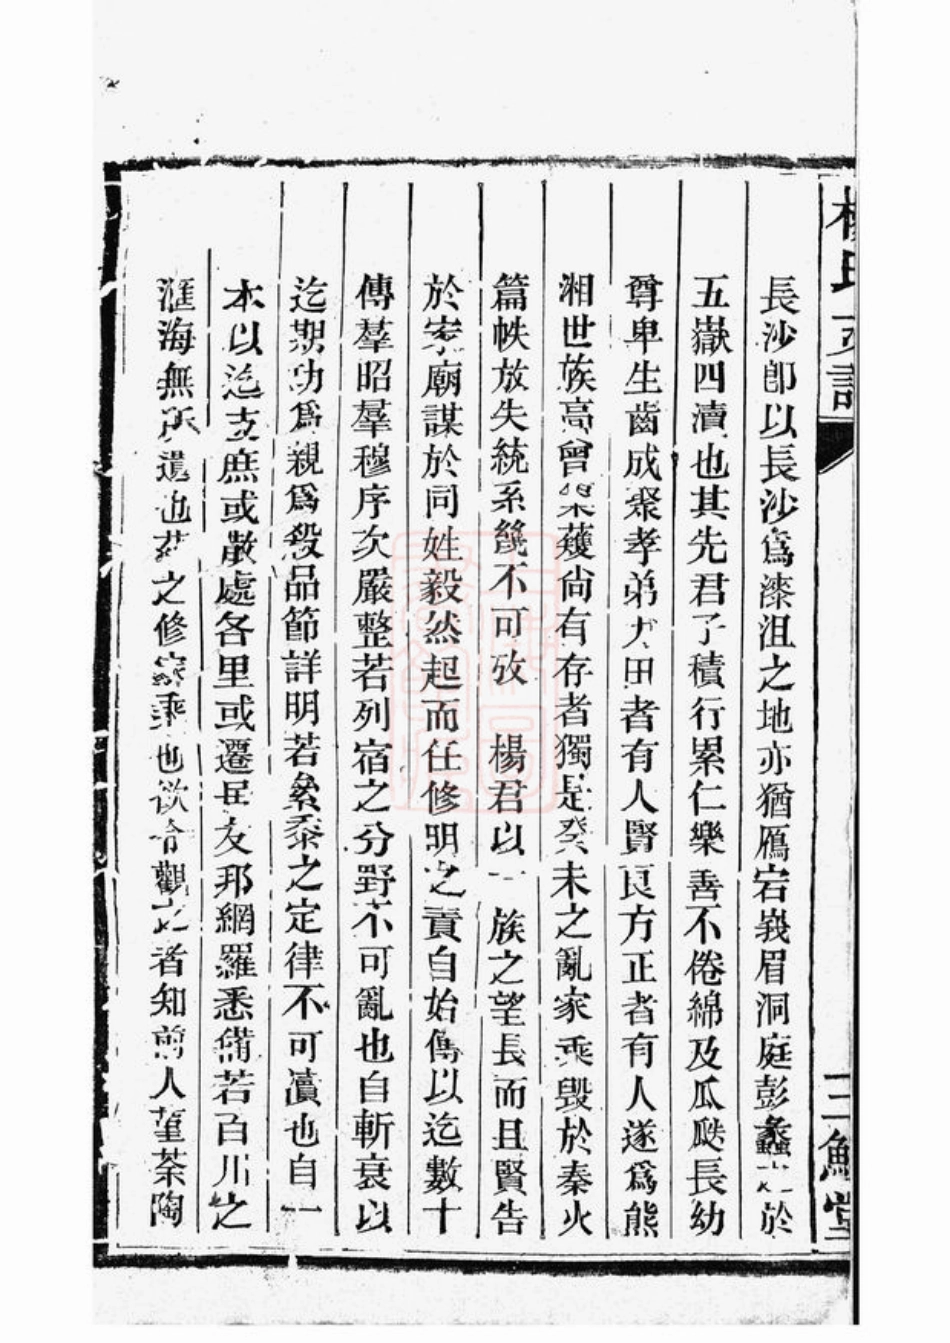 楊氏支譜
三鱣堂
長沙卽以長沙爲漆沮之地亦猶雁宕峩眉洞庭彭蠡之於
五嶽四瀆也其先君子積行累仁樂善不倦綿及瓜瓞長幼
尊卑生齒成衆孝弟力田者有人賢良方正者有人遂爲熊
湘世族高曾榘蒦尙有存者獨是癸未之亂家乘毁於秦火
篇帙放失統系幾不可攷　楊君以一族之望長而且賢告
於家廟謀於同姓毅然起而任修明之責自始傳以迄數十
傳羣昭羣穆序次嚴整若列宿之分野不可亂也自斬衰以
迄期功爲親爲殺品節詳明若絫黍之定律不可瀆也自一
本以迄支庶或散處各里或遷居友邦網羅悉備若百川之
滙海無所遺也茲之修家乘也欲令觀之者知前人菫荼陶